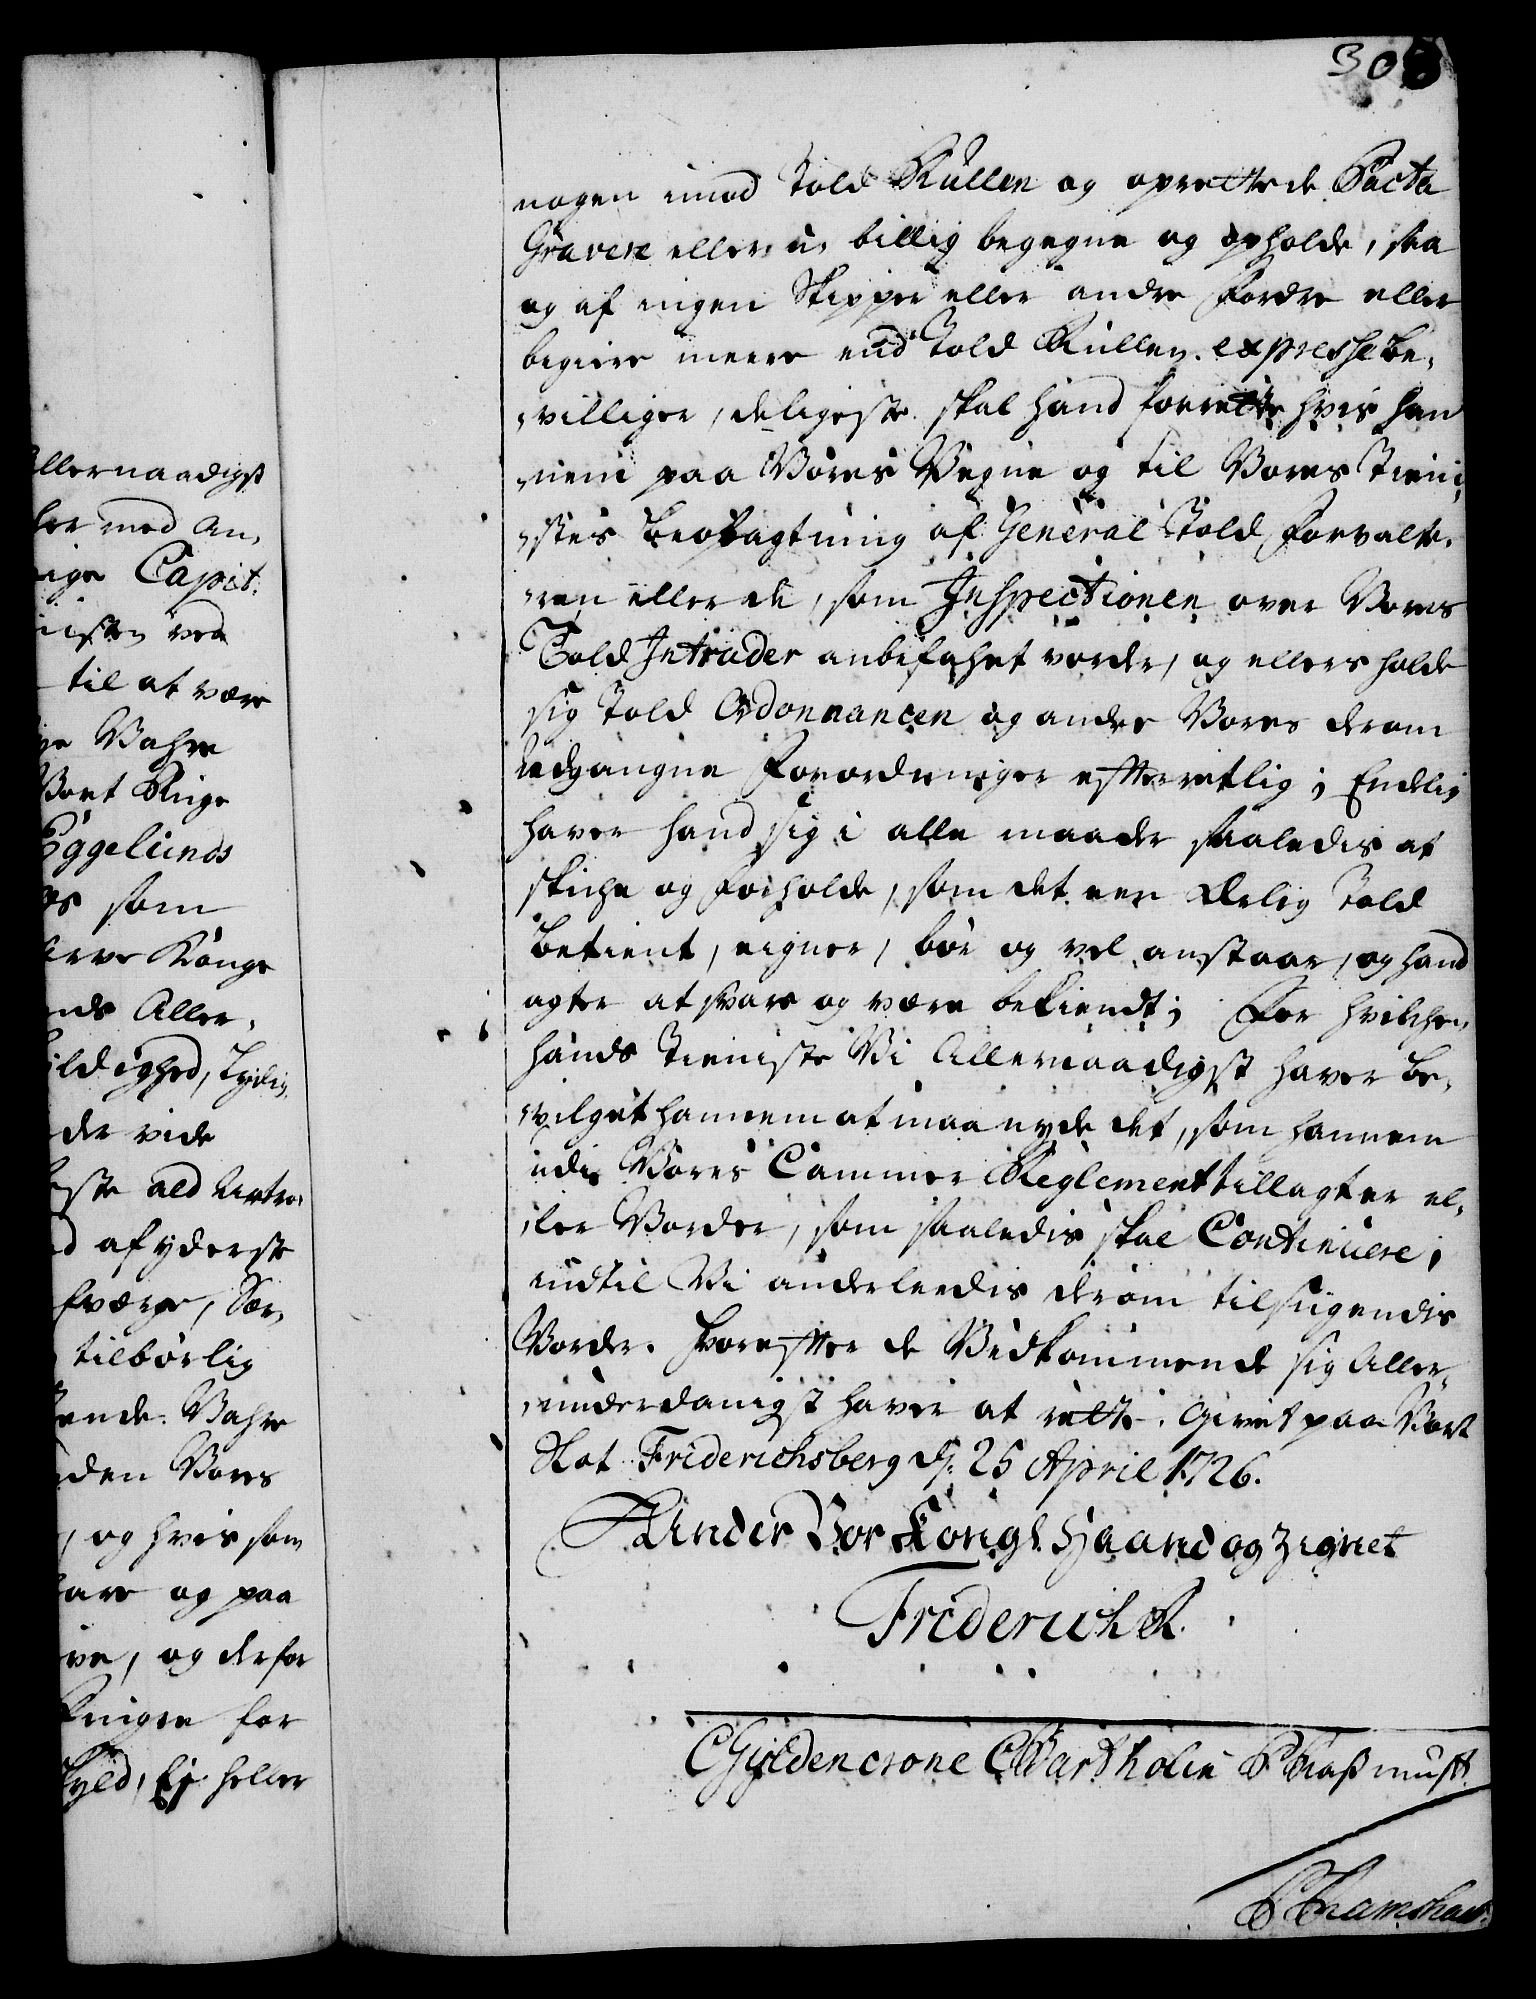 308
nogen imod Told Rullen og oprettede Pacta
Gravere eller u-billig begegne og opholde, saa
og af ingen Skipper eller andre fordre eller
begiere meere end Told Rullen expresse be-
villiger, deligeste skal hand forrette hvis han-
nem paa Vores Vegne og til Vores Tieni-
stes beobagtning af General Told Forvalte-
ren eller de, som Inspectionen over Vores
Told Intrader anbefahet vorder, og ellers holde
sig Told Ordonnancen og andre Vores derom
udgangne Forordninger efterretlig; Endelig
haver hand sig i alle maader saaledis at
skiche og forholde, som det een ærlig Told
betient, eigner, bør og vel anstaar, og hand
agter at svare og være bekiendt; For hvilchen
hands Tieniste Vi Allernaadigst haver be-
vilget hannem at maa nyde det, som hannem
udi Vores Cammer Reglement tillagt er el-
ler Vorder, som saaledis skal Continuere,
indtil Vi anderleedis derom tilsigendis
Vorder. Hvorefter de Vedkommende sig Aller-
underdanigst haver at rette. Givet paa Vort
Slot Friderichsberg d: 25 April 1726.
Under Vor Kongl. Haand og Zignet
Friderich R.
CGyldencrone CBartholin
Allernaadigst
med An-
Capit:
ved
til at være
Vahre
Vort Riige
Eggelunds
som
Arve Konge
Aller-
ildighed, Lydig-
vide
ald Untro-
af yderste
Sær-
tilbørlig
Vahre
Vores
, og hvis som
og paa
, og derfor
for
, Ej heller